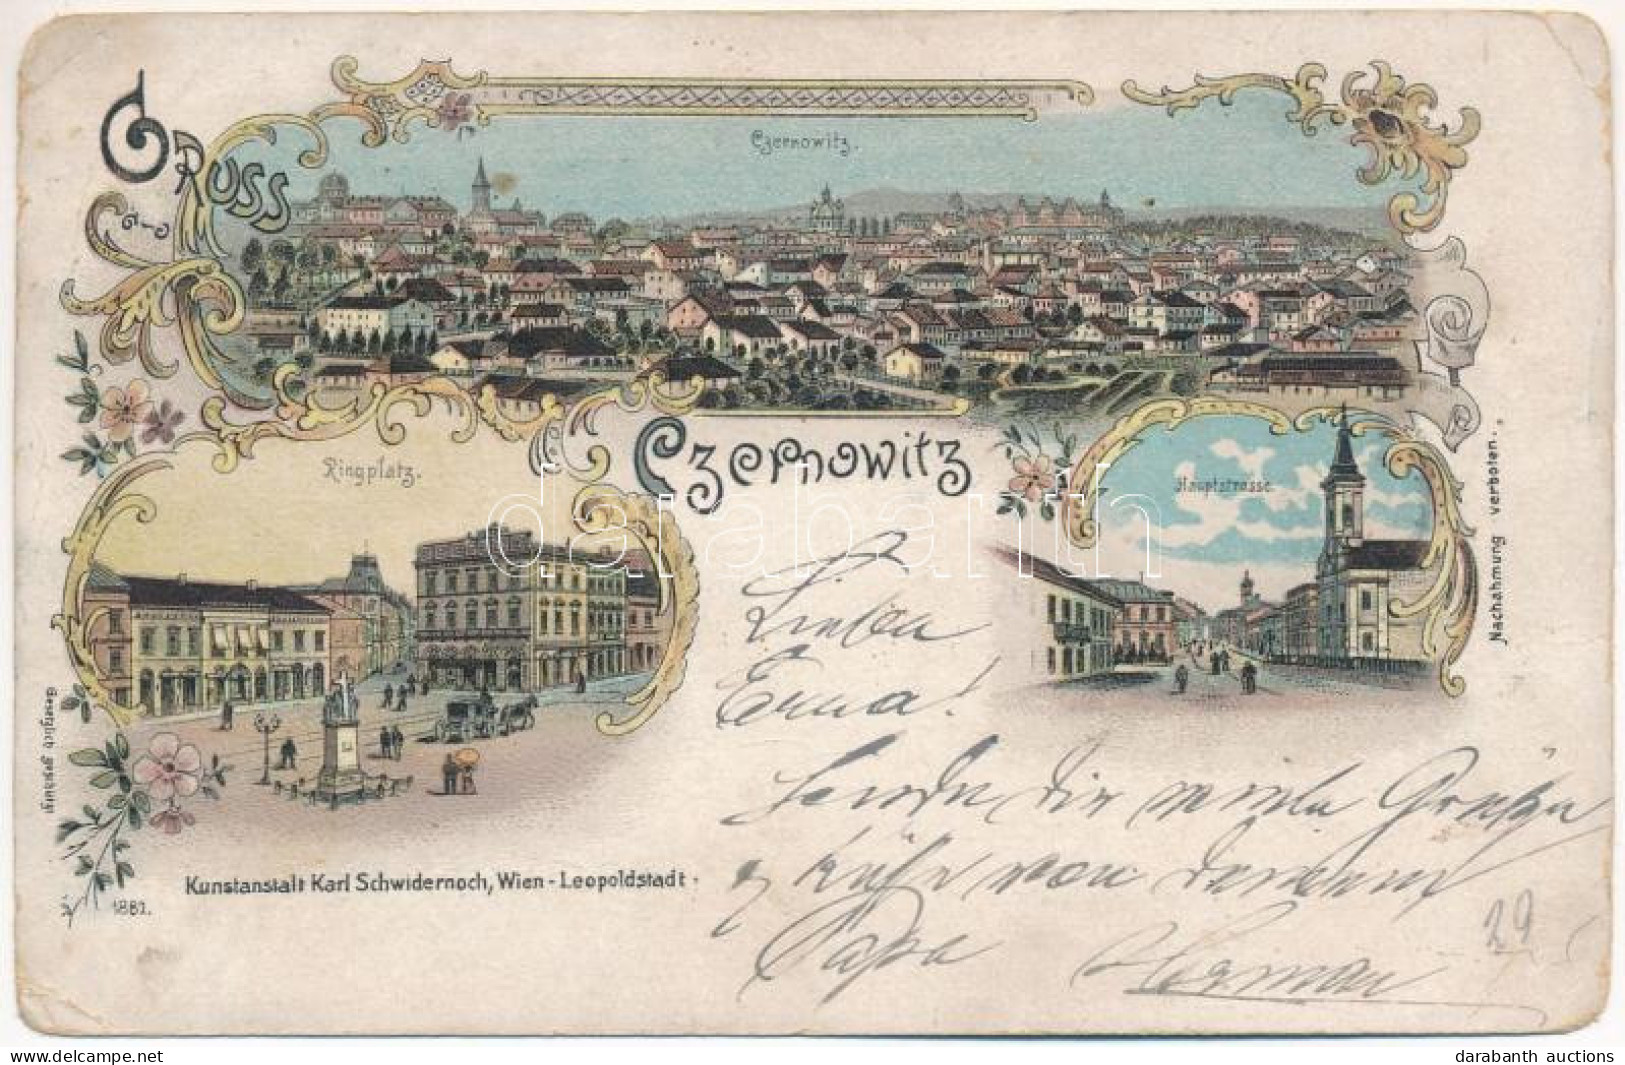 GRUSS
Czernowitz.
Ringplatz.
Czernowitz
Hauptstrasse
Nachahmung verboten.
Gesetzlich geschützt
Kunstanstalt Karl Schwidernoch, Wien-Leopoldstadt.
1881.
Lieben
Erna!
Sende dir viele Grüße
& Küße von deinem
Papa Herman
29
darabanth
darabanth auctions